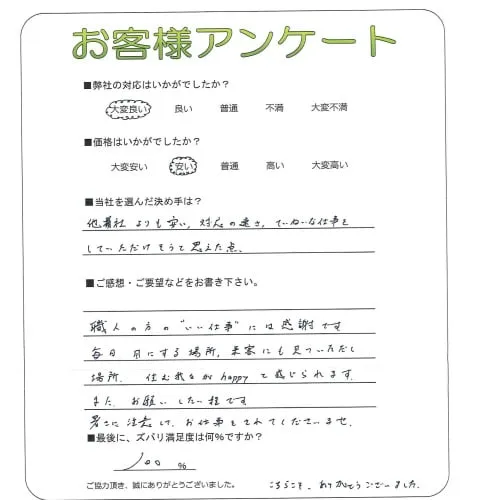 お客様アンケート
■弊社の対応はいかがでしたか？
大変良い 良い 普通 不満 大変不満
■価格はいかがでしたか？
大変安い 安い 普通 高い 大変高い
■当社を選んだ決め手は？
他社よりも安い，対応の速さ，ていねいな仕事を
していただけそうと思えた点、
■ご感想・ご要望などをお書き下さい。
職人の方の"いい仕事"には感謝です
毎日 目にする場所，来客にも見ていただく
場所、住む我々がhappyと感じられます。
また、お願いしたい程です
暑さに注意して、お仕事をされてくださいませ。
■最後に、ズバリ満足度は何%ですか？
100 %
ご協力頂き、誠にありがとうございました。
こちらこそ、ありがとうございました。